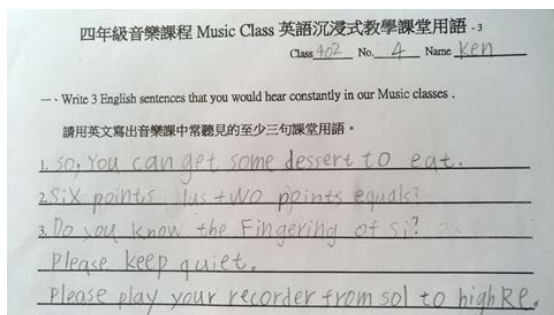 四年級音樂課程 Music Class 英語沉浸式教學課堂用語 -3
Class 402 No. 4 Name Ken
一、Write 3 English sentences that you would hear constantly in our Music classes .
請用英文寫出音樂課中常聽見的至少三句課堂用語。
1. So, You can get some dessert to eat.
2. Six points lus two points equals?
3. Do you know the Fingering of si?
Please keep quiet.
Please play your recorder from sol to high Re.